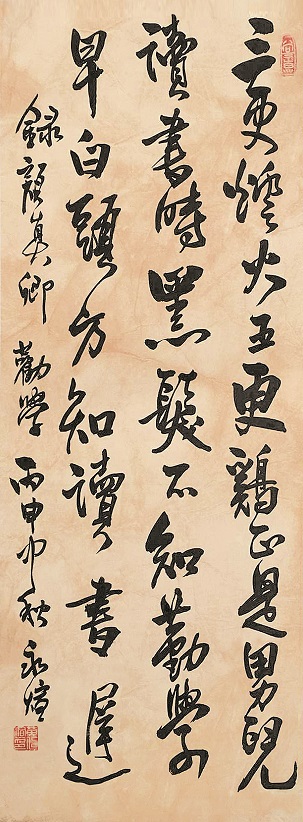 三更燈火五更鷄正是男兒
讀書時黑髮不知勤學
早白頭方知讀書遲
錄顏真卿 勸學 丙申中秋 永